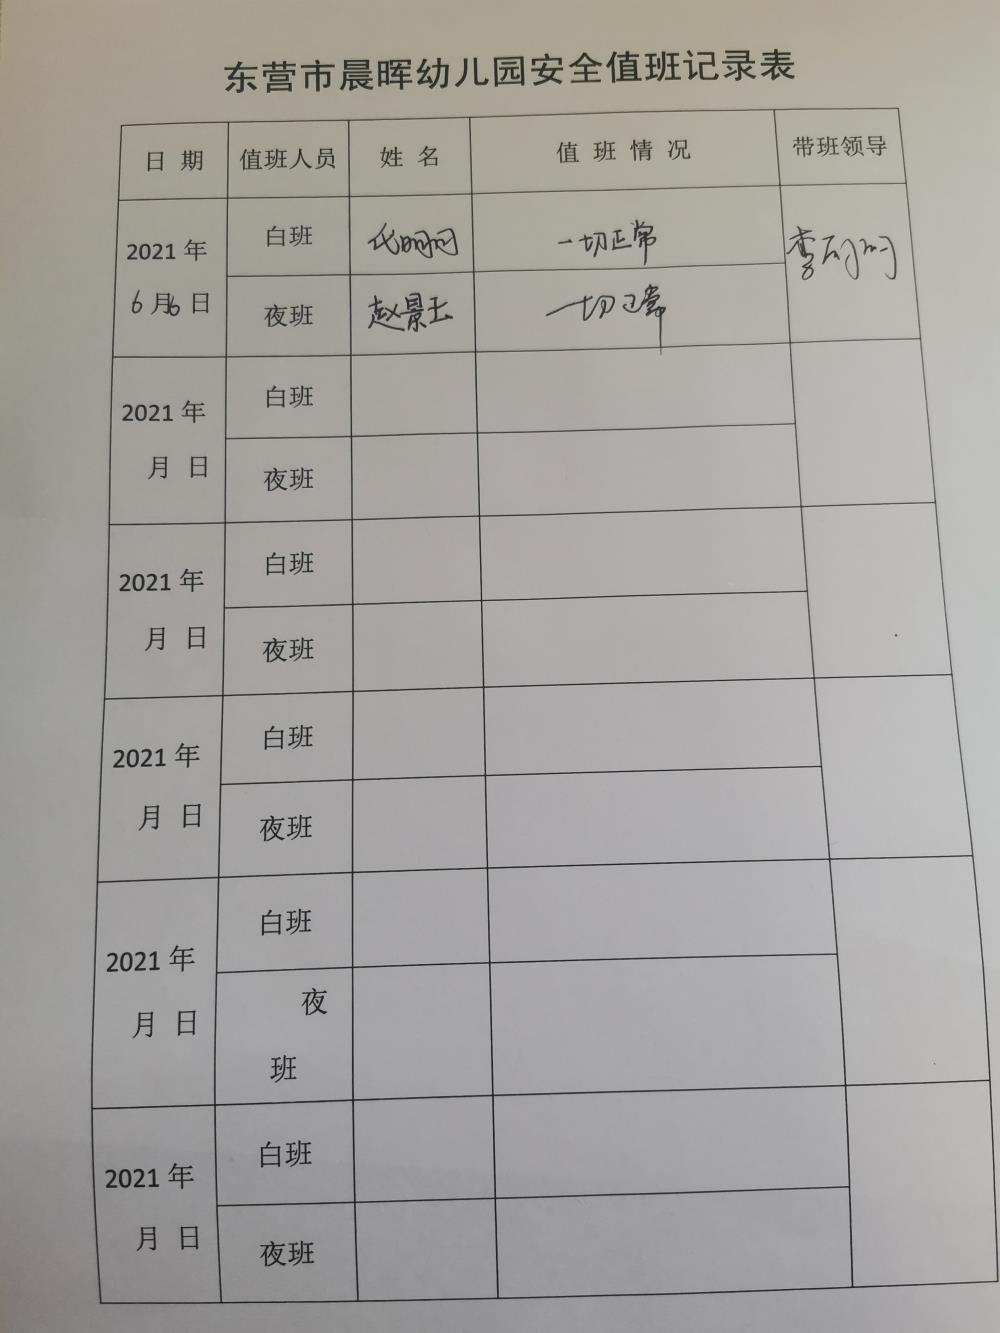 东营市晨晖幼儿园安全值班记录表
日 期 值班人员 姓 名 值 班 情 况 带班领导
2021 年
6 月 6 日
白班 一切正常
夜班 赵景玉 一切正常
2021 年
月 日
白班
夜班
2021 年
月 日
白班
夜班
2021 年
月 日
白班
夜班
2021 年
月 日
白班
夜
班
2021 年
月 日
白班
夜班